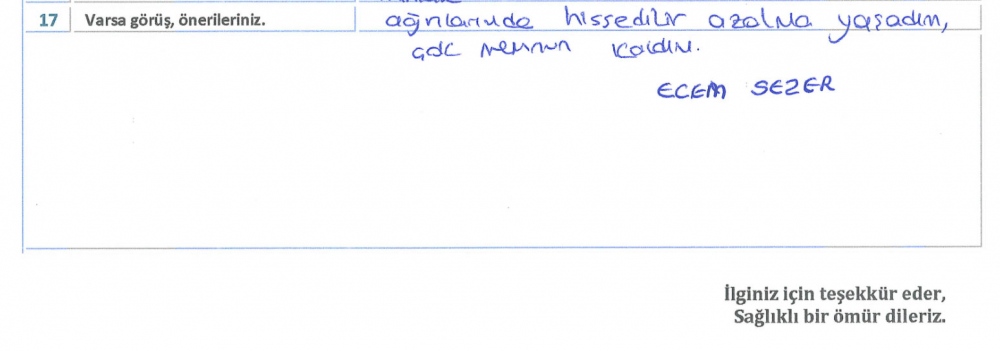 17 Varsa görüş, önerileriniz.
ağrılarımda hissedilir azalma yaşadım,
çok memnun kaldım.
ECEM SEZER
İlginiz için teşekkür eder,
Sağlıklı bir ömür dileriz.